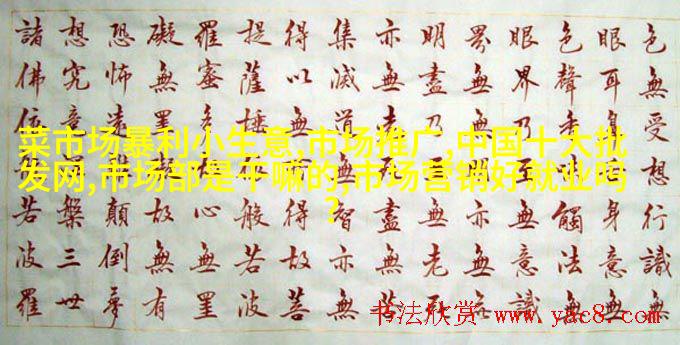 菜市场暴利小生意,市场推广,中国十大批
发网,市场部是干嘛的,市场营销好就业吗
?
色無受想行識無
眼耳身意無
色聲香觸法無
眼界乃無意識
界無無亦無無
明盡乃無老死
亦無老盡無
集滅道智亦無
得以無得故菩
提薩埵般若波
羅蜜多心無罣
礙無罣故無有
恐怖遠顛倒夢
想究竟槃三世
諸佛依若波羅
书法欣赏 www.yac8.com